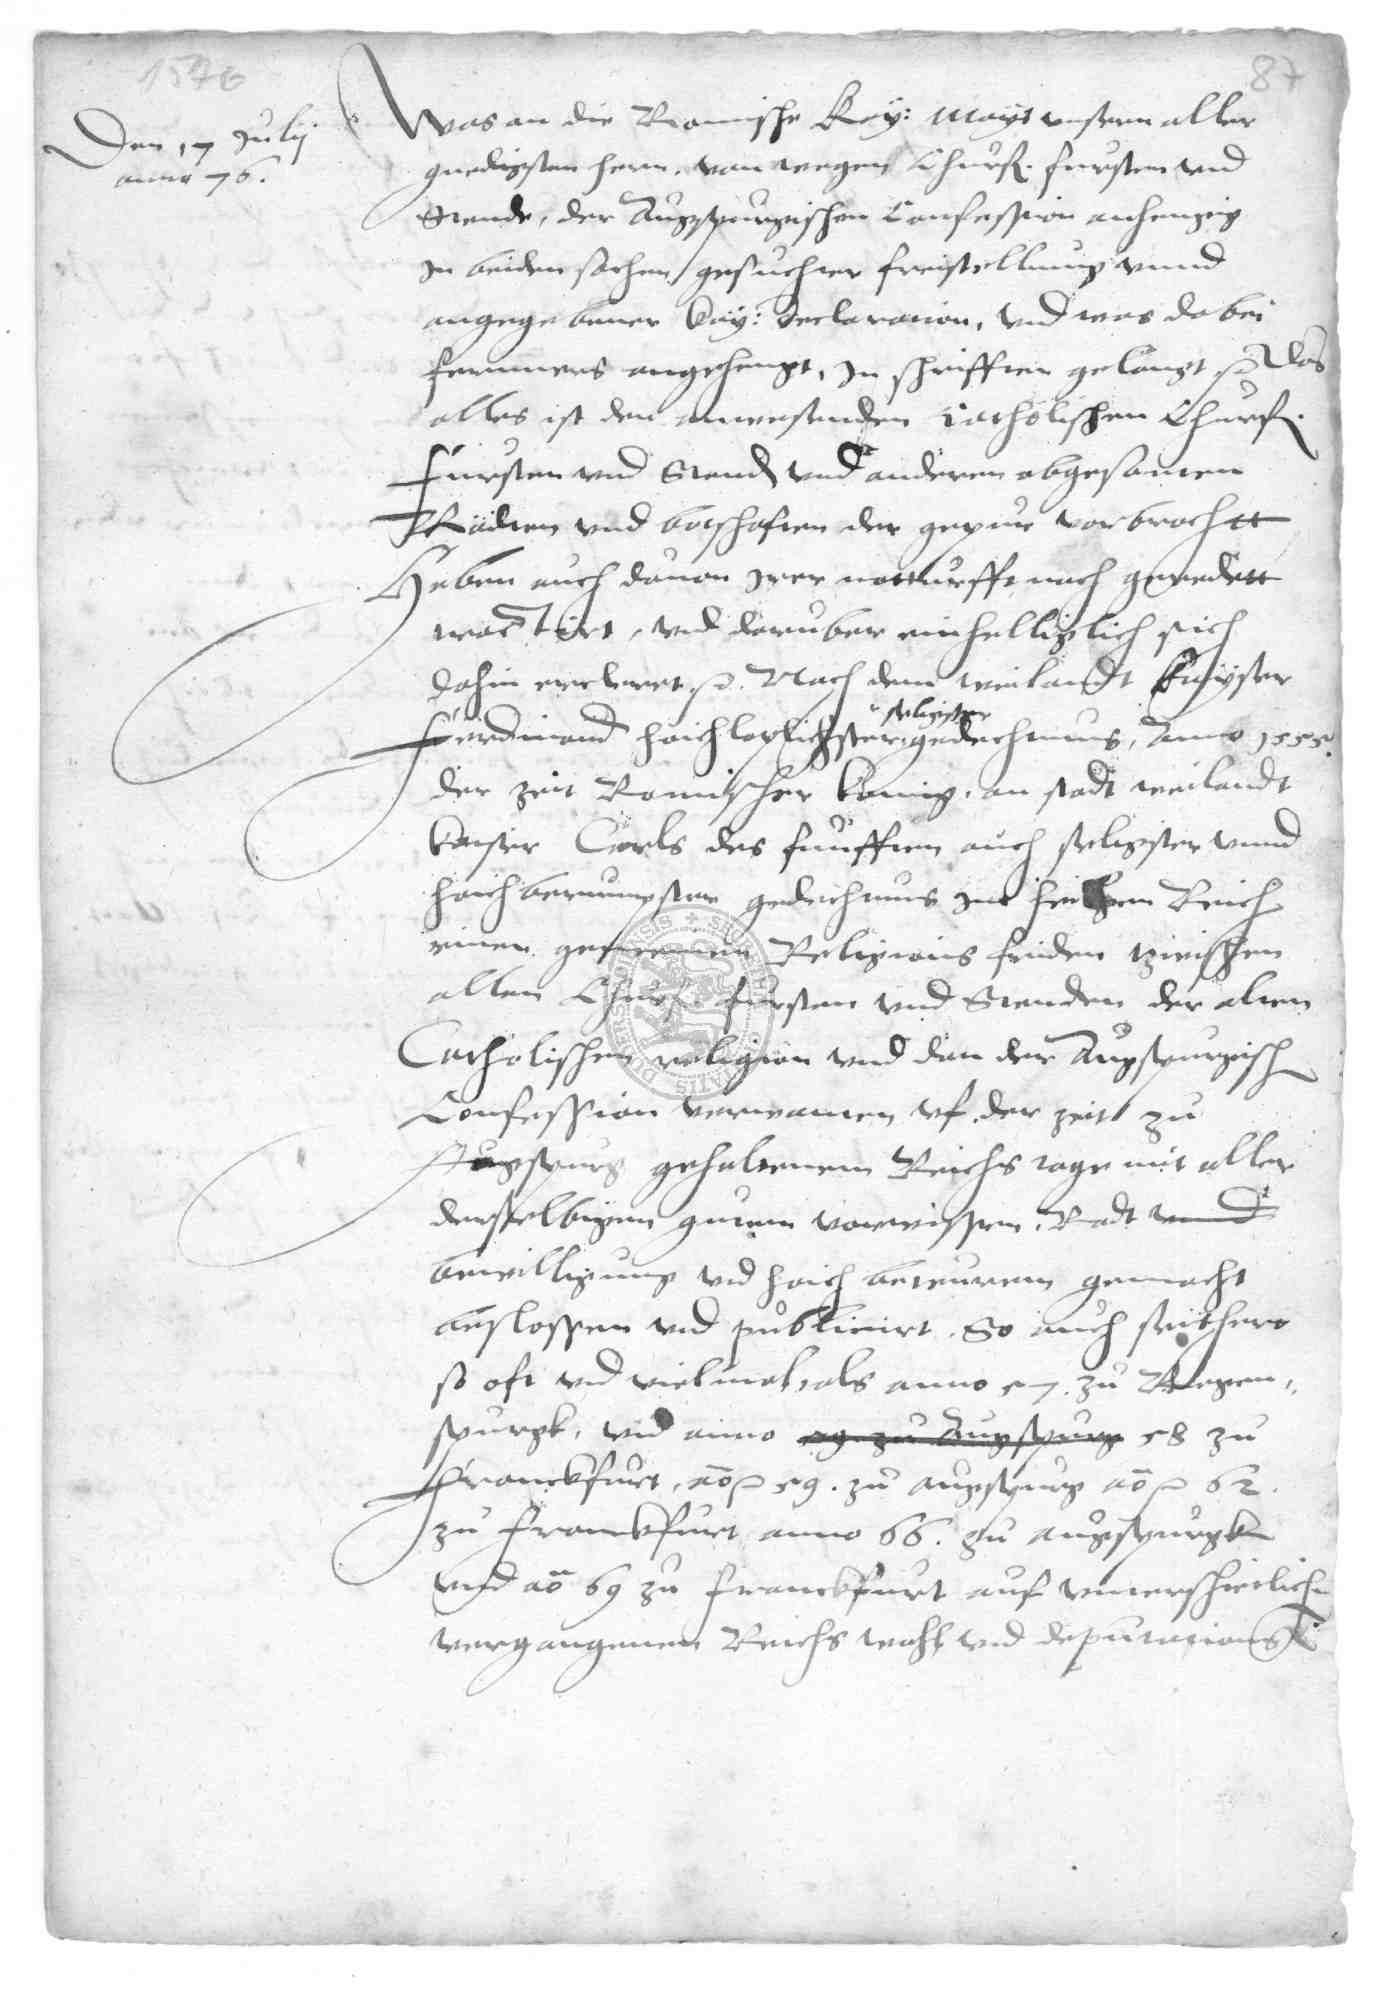 1576
87
Den 17 Julij
anno 76.
Was an die Romische Key: Mayt unsern aller
gnedigsten hern, von wegen Churf. fursten und
Stende, der Augspurgischen Confession anhengig
In beiden sachen gesuchter freistellung unnd
angegebener Kay: Declaration, und was dabei
fernners angehengt, In schrifften gelangt, Das
alles ist den anwesenden Catholischen Churf.
Fursten und Stend und anderen abgesanten
Räthen und botschaften der gepur vorbrachtt
Haben auch davon Irer notturfft nach geredtt
tractirt, und daruber einhelliglich sich
dahin ercleret. Nach dem weilandt Kayser
seligster
Ferdinand hochloblichster gedechtnus, Anno 1555.
der zeit Romischer Konig, an stadt weilandt
Kaiser Carls des funfften auch seligster unnd
hochberumpster gedechtnus Im heiligen Reich
einen gemeinen Religions friden zwischen
allen Churf. fursten und Stenden der alten
Catholischen religion und dan der Augspurgisch
Confession verwanten uf der zeit zu
Augspurg gehaltenem Reichs tage mit aller
derselbigen gutem vorwissen, Radt und
bewilligung und hoch beteuren gemacht
beslossen und publicirt. So auch seithero
so oft und vielmal, als anno 57. zu Regen,,
spurgk, und anno 59 zu Augspurg 58 zu
Franckfurt, ao 59. zu augspurg ao 62.
zu Franckfurt anno 66. zu augspurgk
und ao 69 zu Franckfurt auf underschietlich
vergangenen Reichs wahl und deputations